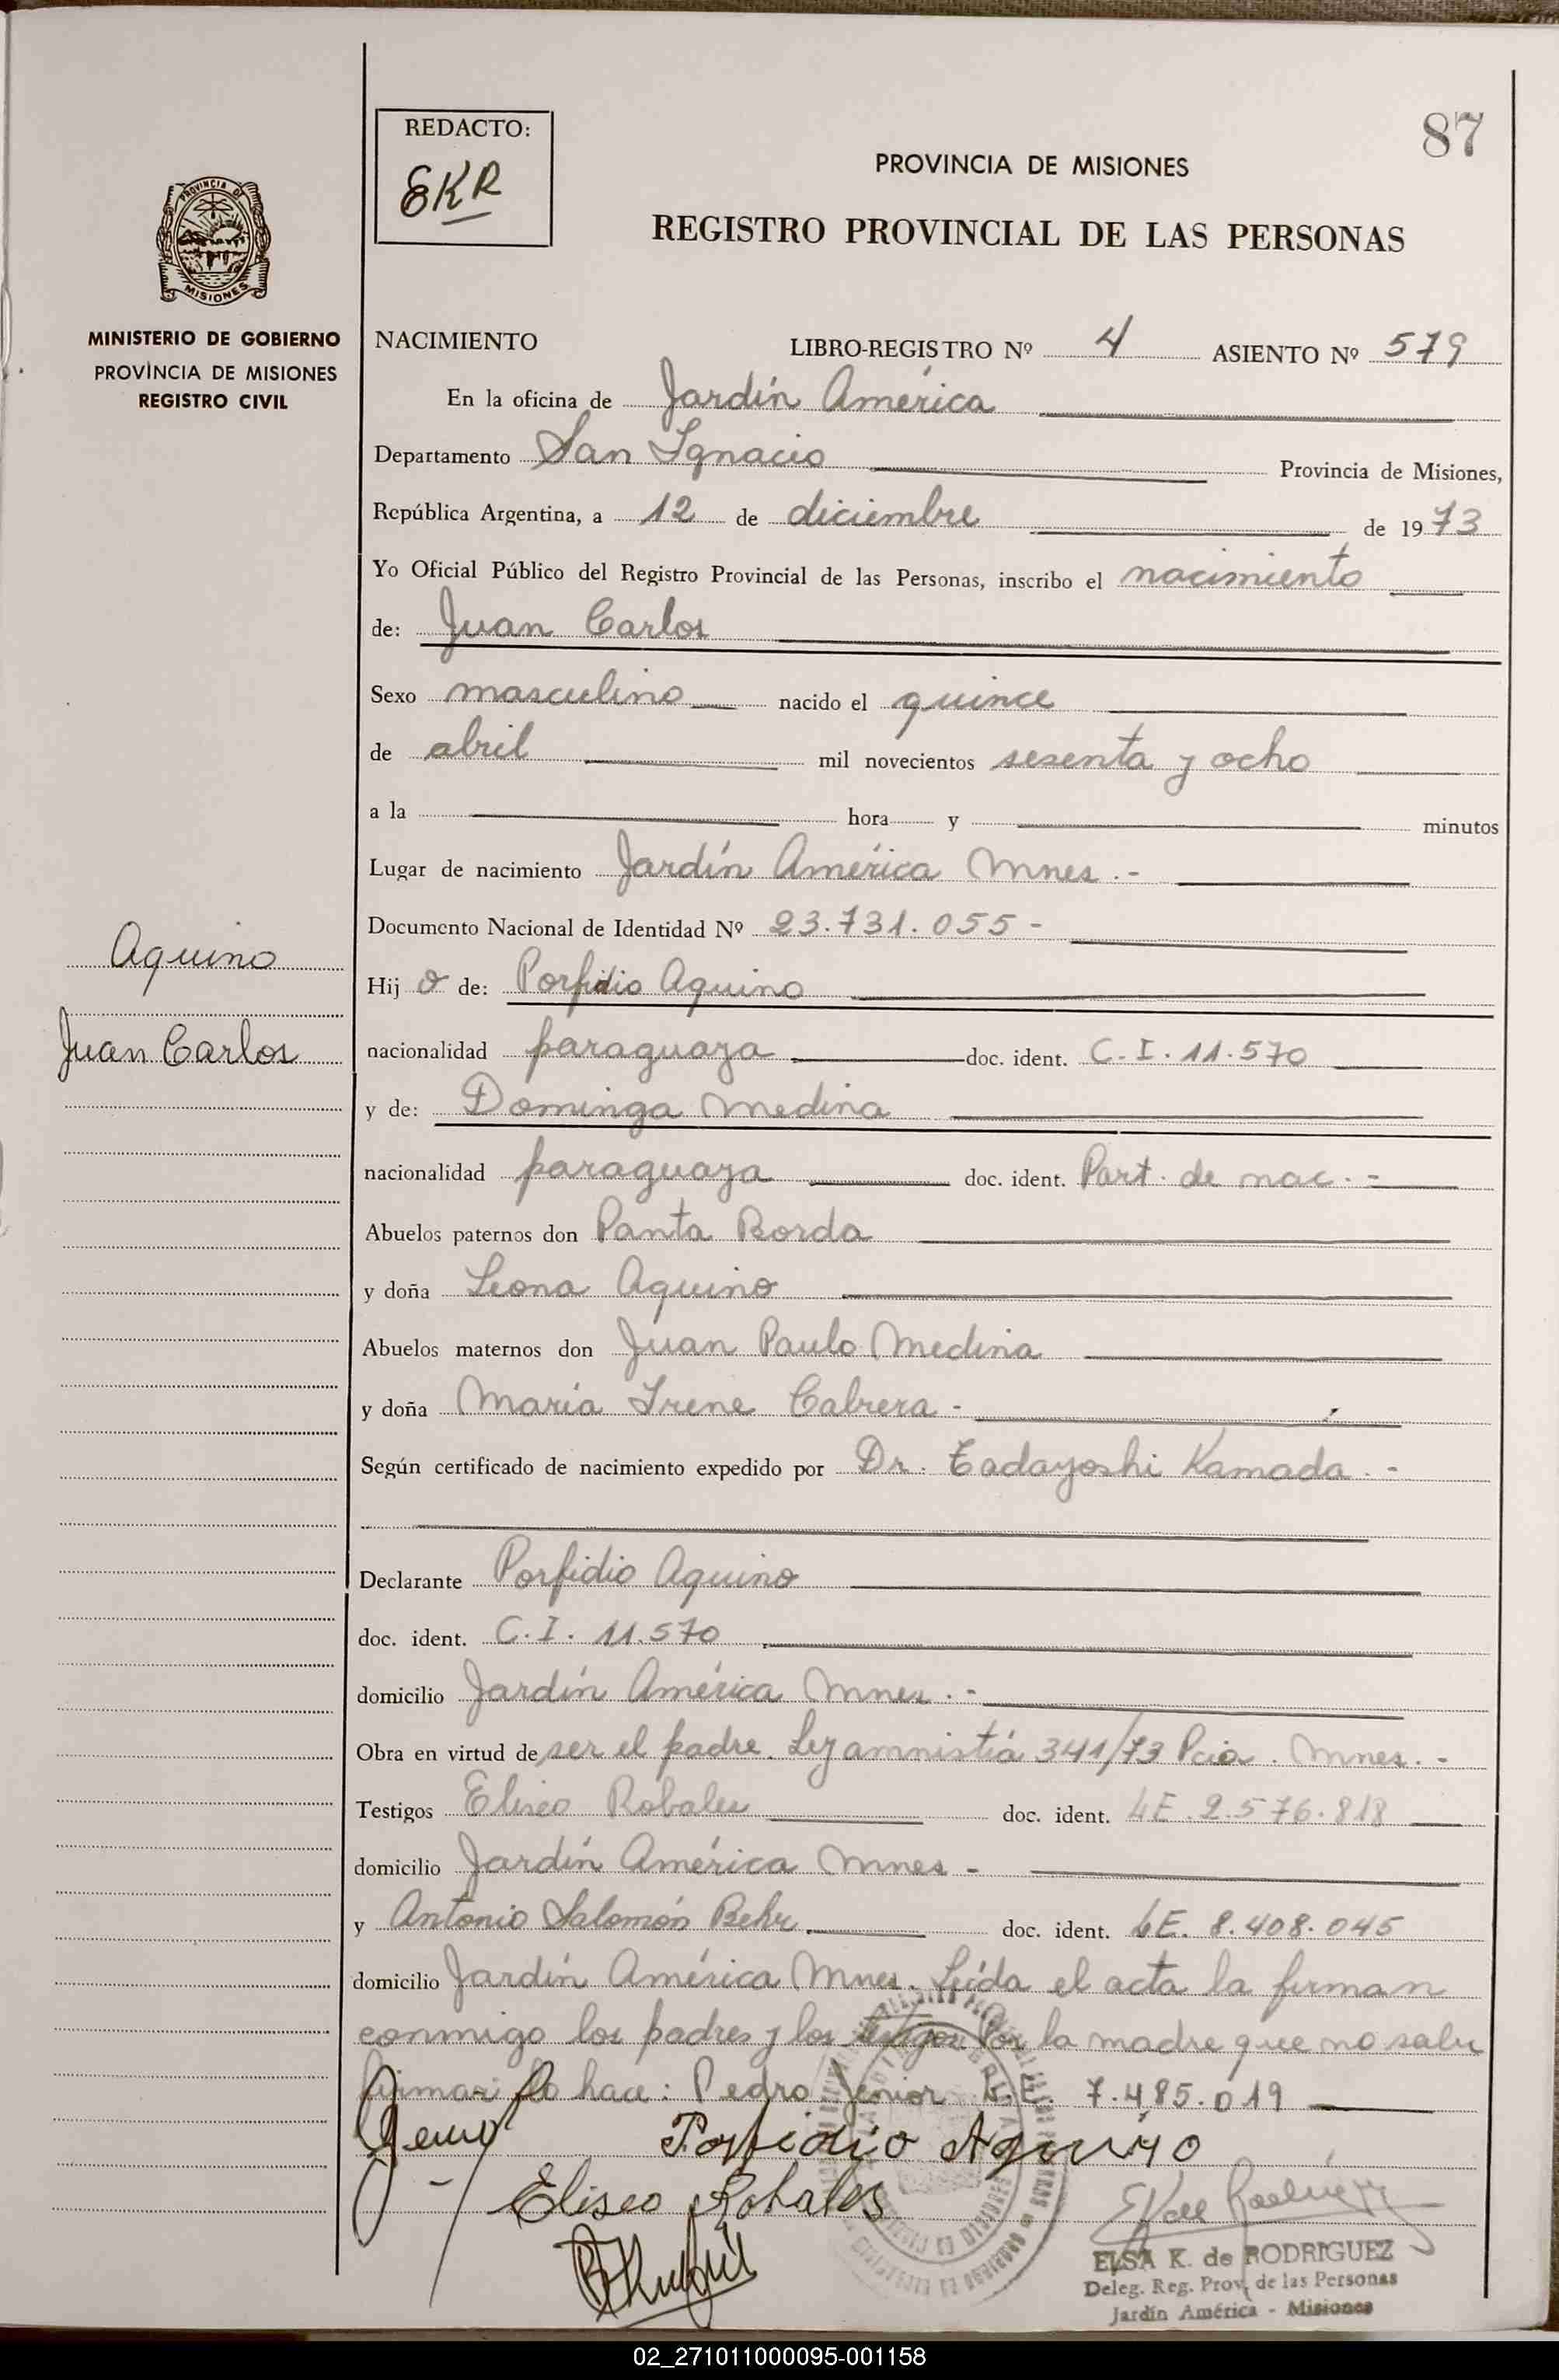 87
REDACTO:
EKR
PROVINCIA DE MISIONES
REGISTRO PROVINCIAL DE LAS PERSONAS
PROVINCIA DE
MISIONES
MINISTERIO DE GOBIERNO
PROVINCIA DE MISIONES
REGISTRO CIVIL
Aquino
Juan Carlos
NACIMIENTO LIBRO-REGISTRO Nº 4 ASIENTO Nº 579
En la oficina de Jardín América
Departamento San Ignacio Provincia de Misiones,
República Argentina, a 12 de diciembre de 1973
Yo Oficial Público del Registro Provincial de las Personas, inscribo el nacimiento
de: Juan Carlos
Sexo masculino nacido el quince
de abril mil novecientos sesenta y ocho
a la hora y minutos
Lugar de nacimiento Jardín América Mnes.-
Documento Nacional de Identidad Nº 23.731.055-
Hijo de: Porfidio Aquino
nacionalidad paraguaya doc. ident. C.I. 11.570
y de: Dominga Medina
nacionalidad paraguaya doc. ident. Part. de nac.-
Abuelos paternos don Panta Borda
y doña Leona Aquino
Abuelos maternos don Juan Paulo Medina
y doña María Irene Cabrera -
Según certificado de nacimiento expedido por Dr. Tadayoshi Kamada.-
Declarante Porfidio Aquino
doc. ident. C.I. 11.570
domicilio Jardín América Mnes.-
Obra en virtud de ser el padre. Ley amnistía 341/73 Pcia. Mnes.-
Testigos Eliseo Robales doc. ident. LE. 2.576.818
domicilio Jardín América Mnes -
y Antonio Salomón Behr doc. ident. LE. 8.408.045
domicilio Jardín América Mnes. Leída el acta la firman
conmigo los padres y los testigos Por la madre que no sabe
firmar lo hace: Pedro Jenior L.E. 7.485.019
Porfidio Aquino
Eliseo Robales
ELSA K. de RODRIGUEZ
Deleg. Reg. Prov. de las Personas
Jardín América - Misiones
02_271011000095-001158